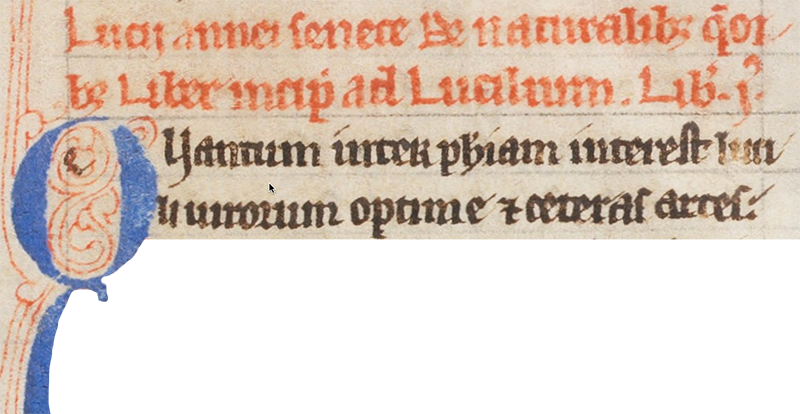 Lucij annei senece De naturalibꝫ q̄oi
bꝫ Liber incip̄ ad Lucilium . Lib. j.
QUantum inter phiam interest luci
li uirorum optime ⁊ ceteras artes.